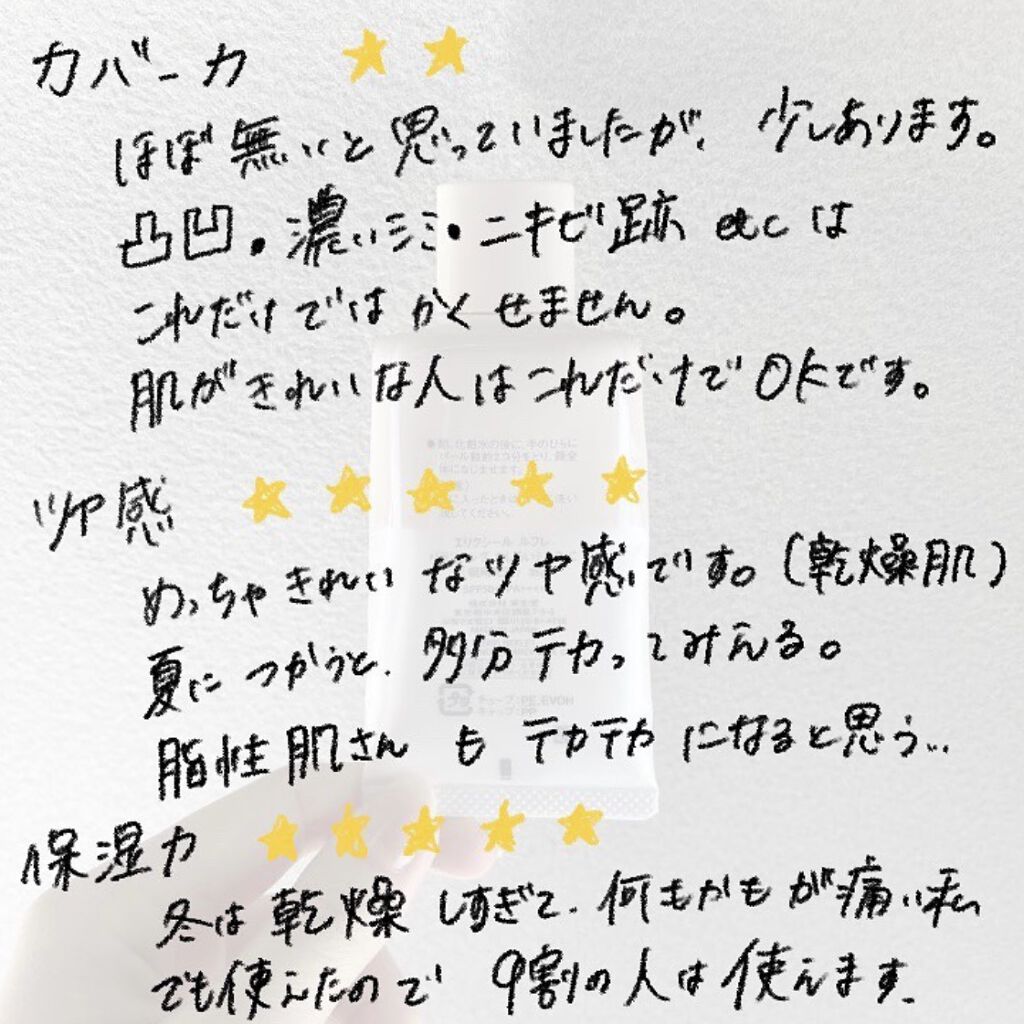 カバー力
ほぼ無いと思っていましたが、少しあります。
凸凹・濃いシミ・ニキビ跡 etc は
これだけではかくせません。
肌がきれいな人はこれだけでOKです。
ツヤ感
めっちゃきれいなツヤ感です。(乾燥肌)
夏につかうと、多分テカってみえる。
脂性肌さんもテカテカになると思う…
保湿力
冬は乾燥しすぎて、何もかもが痛い私
でも使えたので9割の人は使えます.
エリクシール ルフレ
チューブ:PE,EVOH